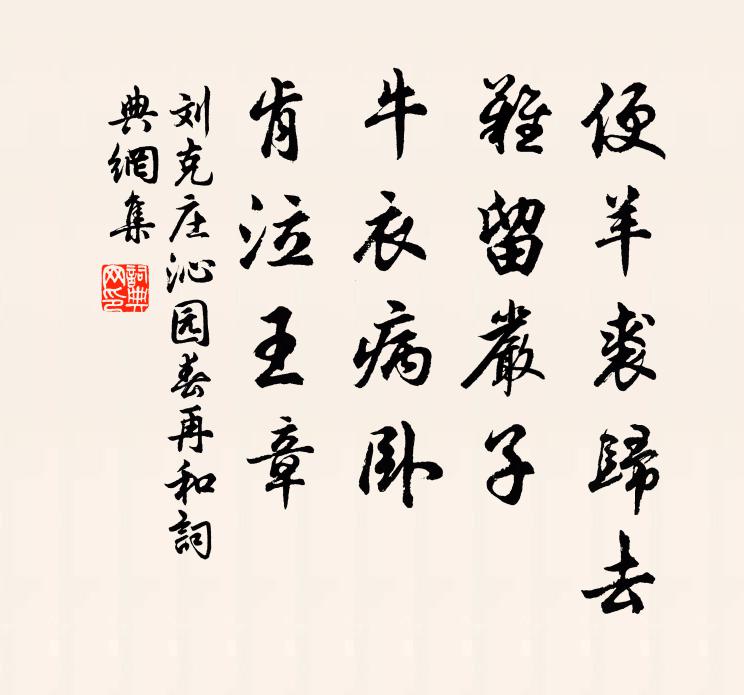 便羊裘歸去
難留嚴子
牛衣病卧
肯泣王章
刘克庄沁园春再和詞
典網集
詞典網印